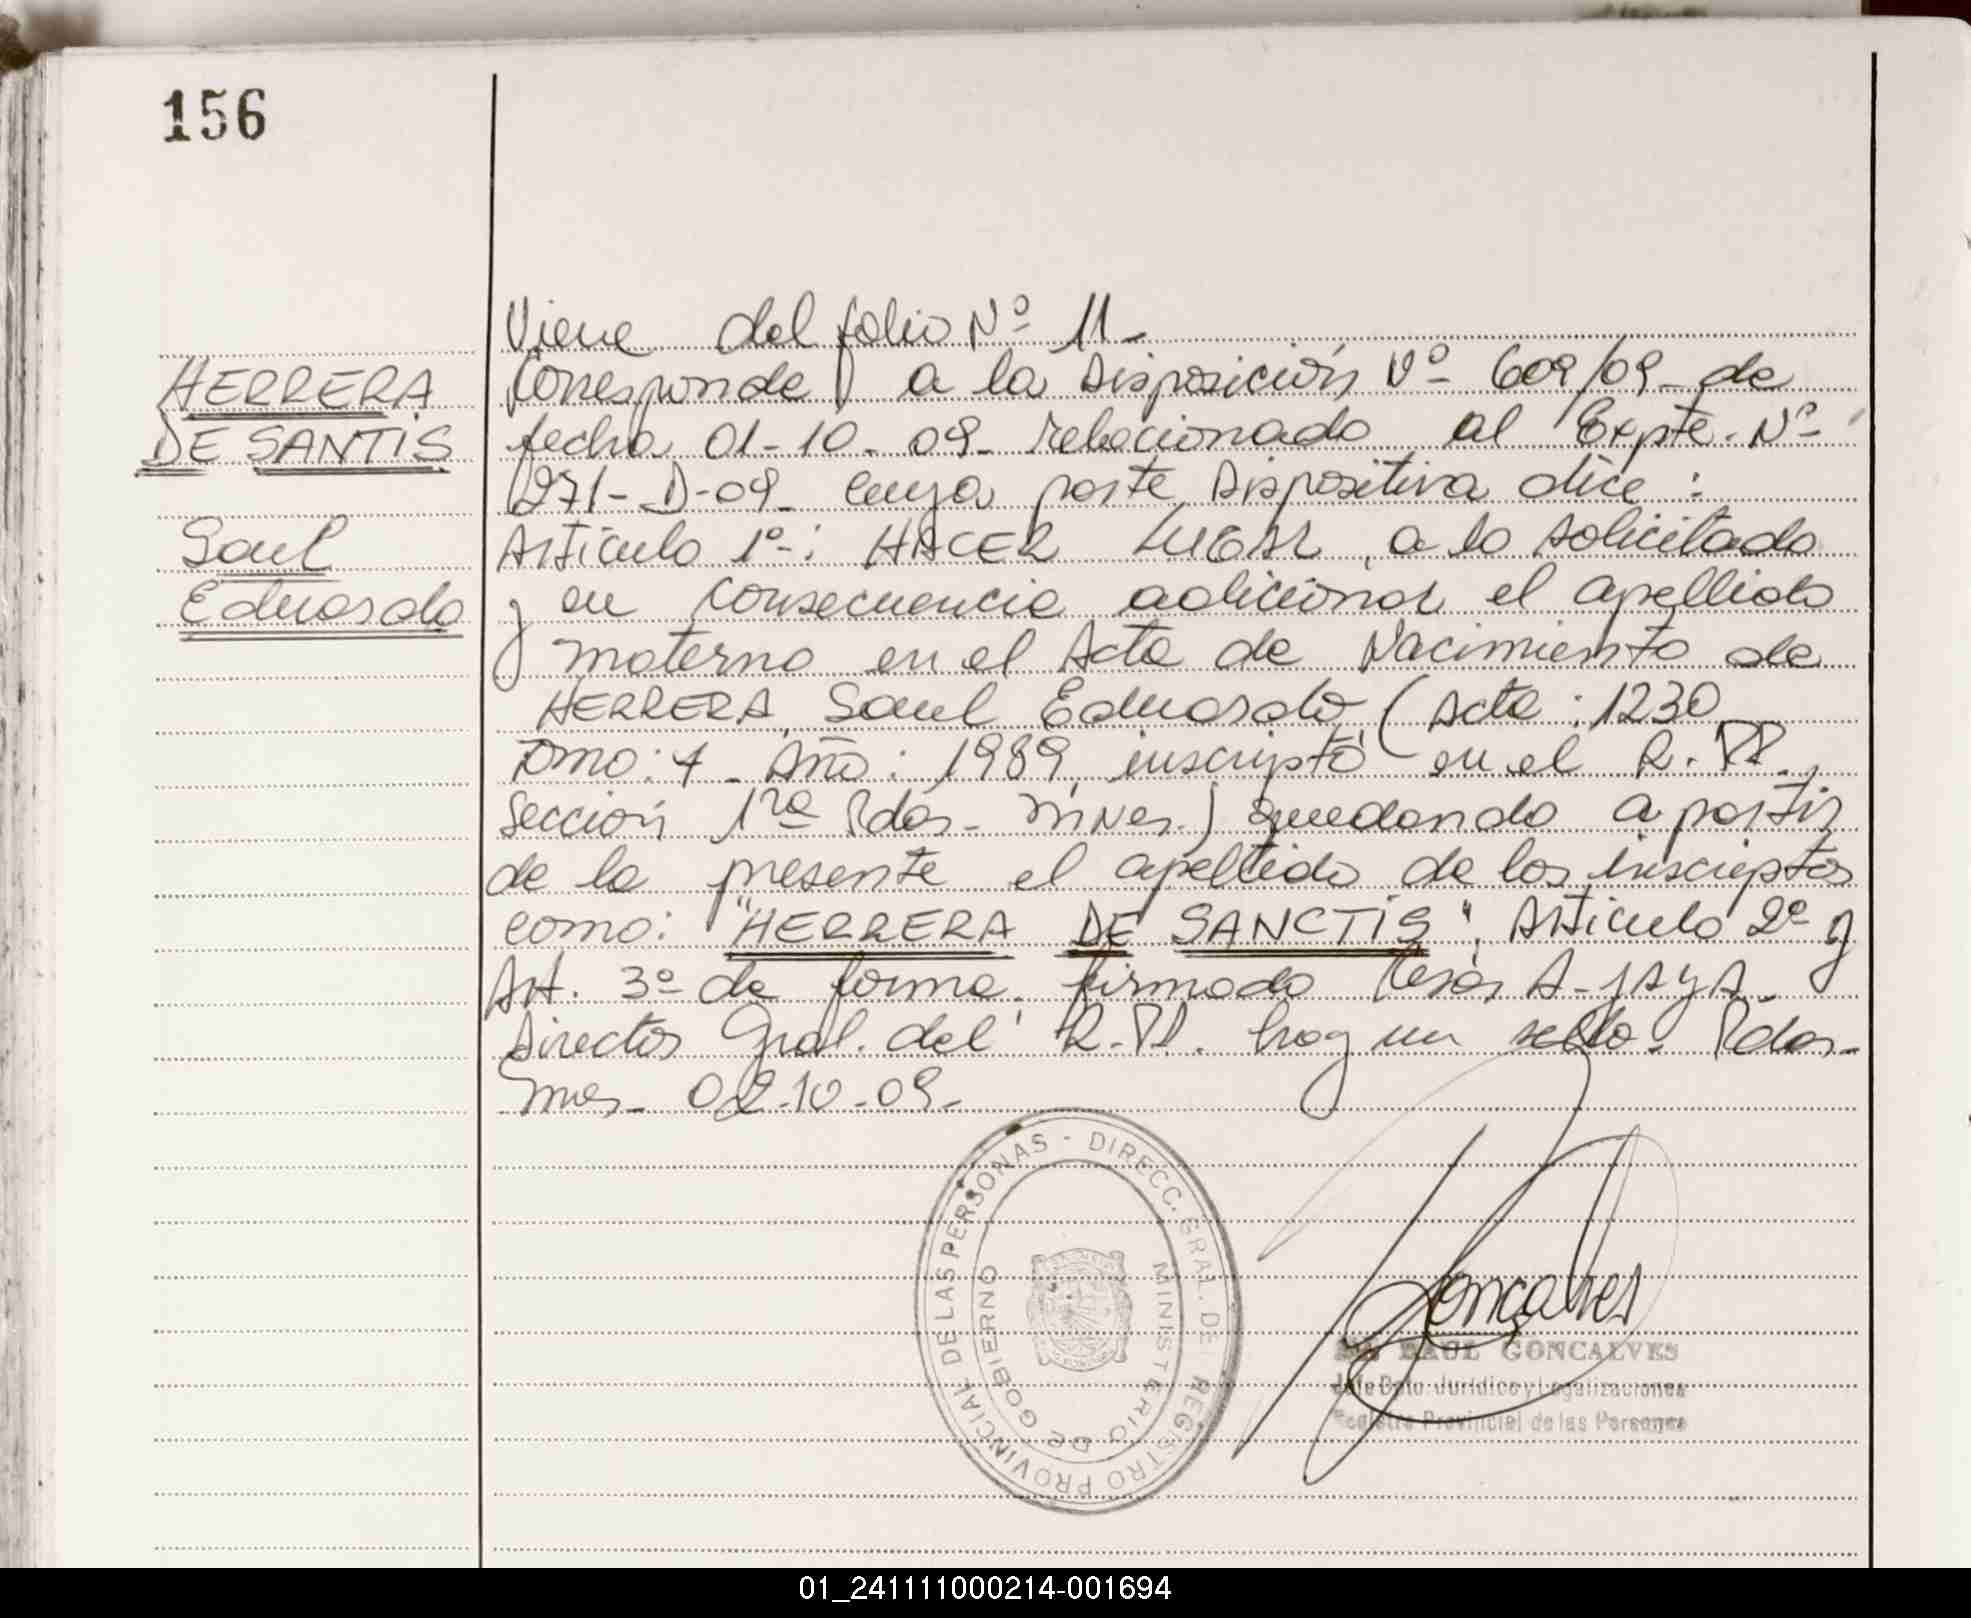 156
HERRERA
DE SANTIS
Saul
Eduardo
Viene del folio Nº 11-
Corresponde a la Disposición Nº 609/09- de
fecha 01-10-09- relacionado al Expte. Nº
1271-D-09- cuya parte Dispositiva dice:
Artículo 1º-: HACER LUGAR, a lo solicitado
y en consecuencia adicionar el apellido
materno en el Acta de Nacimiento de
HERRERA, Saul Eduardo (Acta: 1230
Tomo: 4- Año: 1989, inscripto en el R. PP.,
Sección 1ra Pdas- Mnes.) quedando a partir
de la presente el apellido de los inscriptos
como: "HERRERA DE SANCTIS". Artículo 2º y
Art. 3º de forma. firmado Cesar A-JAYA-
Director Gral. del R.PP. hay un sello- Pdas-
Mnes- 02-10-09-
DIRECC. GRAL. DE REGISTRO PROVINCIAL DE LAS PERSONAS -
MINISTERIO DE GOBIERNO
Goncalves
RAUL GONCALVES
Jefe Dpto. Jurídico y Legalizaciones
Registro Provincial de las Personas
01_241111000214-001694